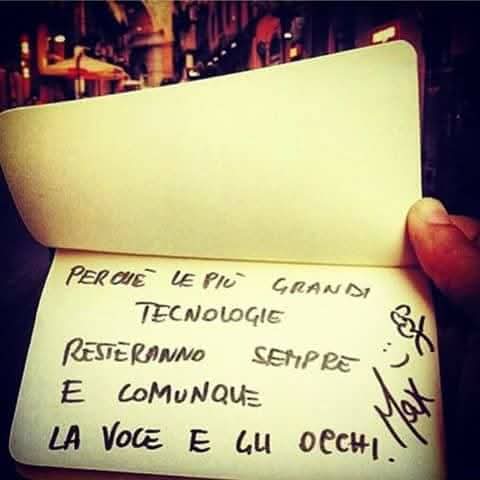 PERCHÈ LE PIÙ GRANDI
TECNOLOGIE
RESTERANNO SEMPRE
E COMUNQUE
LA VOCE E GLI OCCHI.
Max :)